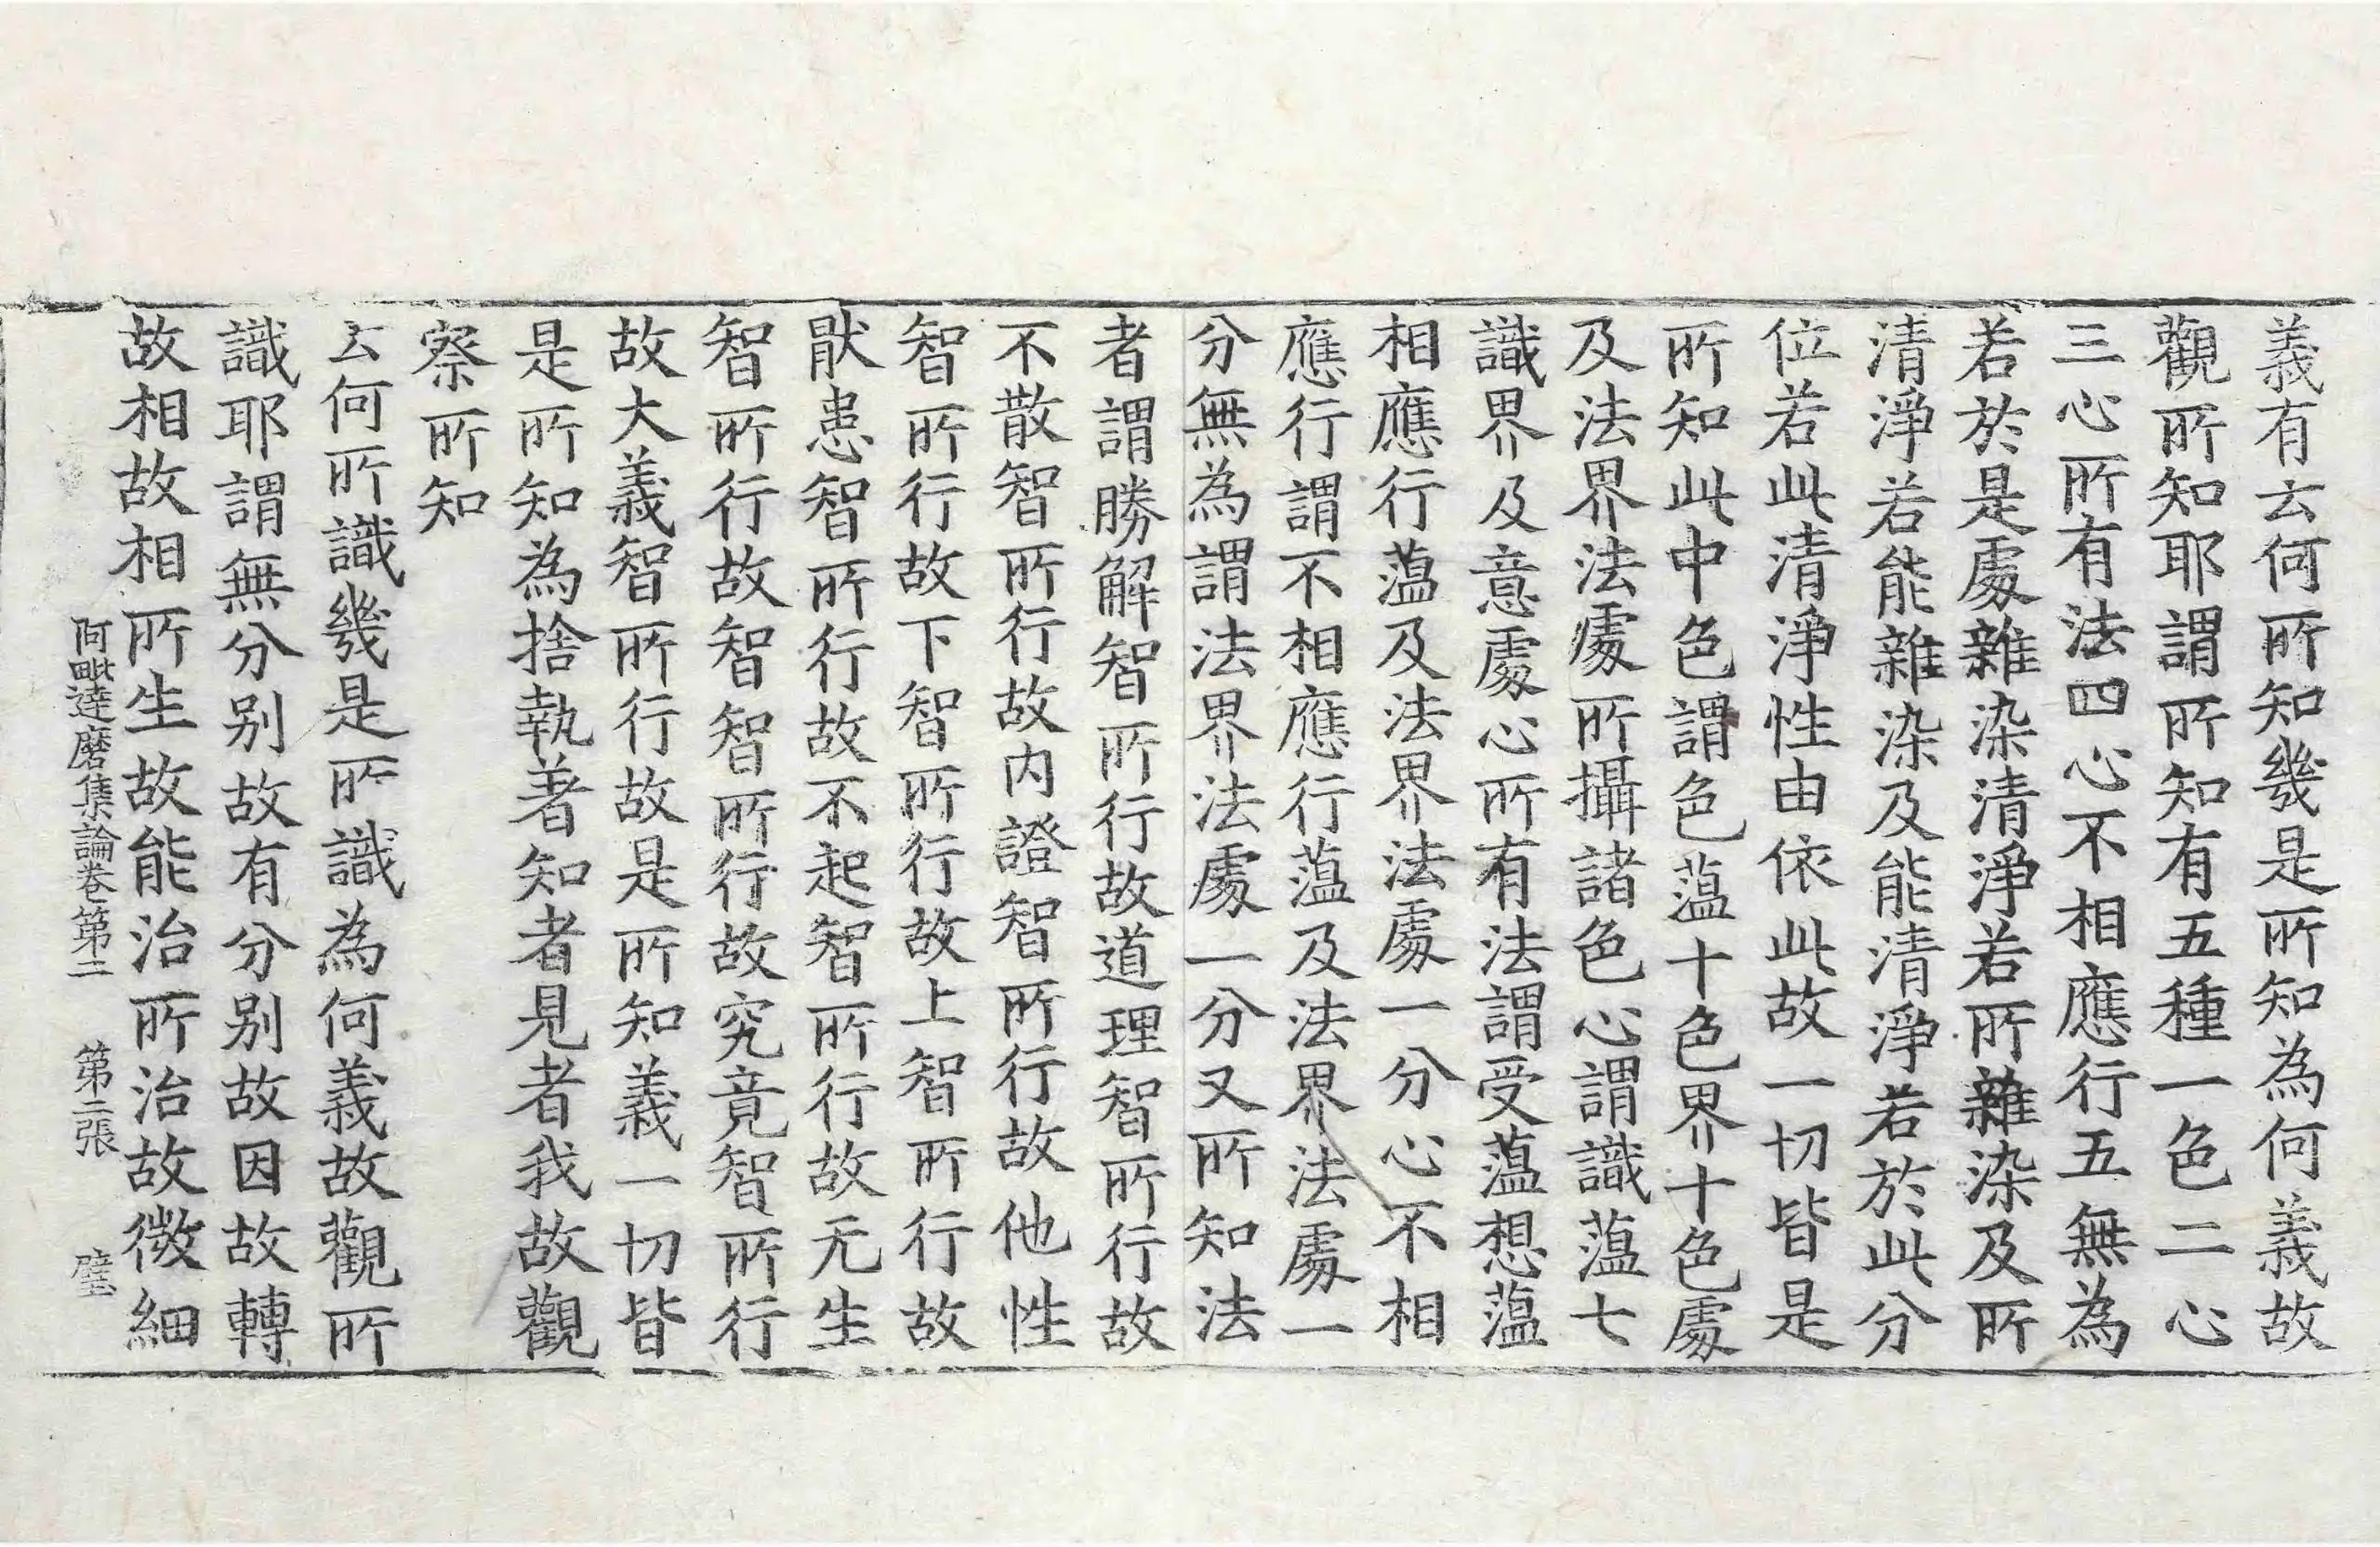 義有云何所知幾是所知為何義故
觀所知耶謂所知有五種一色二心
三心所有法四心不相應行五無為
若於是處雜染清淨若所雜染及所
清淨若能雜染及能清淨若於此分
位若此清淨性由依此故一切皆是
所知此中色謂色蕰十色界十色處
及法界法處所攝諸色心謂識蕰七
識界及意處心所有法謂受蕰想蕰
相應行蕰及法界法處一分心不相
應行謂不相應行蕰及法界法處一
分無為謂法界法處一分又所知法
者謂勝解智所行故道理智所行故
不散智所行故内證智所行故他性
智所行故下智所行故上智所行故
猒患智所行故不起智所行故无生
智所行故智智所行故究竟智所行
故大義智所行故是所知義一切皆
是所知為捨執著知者見者我故觀
察所知
云何所識幾是所識為何義故觀所
識耶謂無分别故有分别故因故轉
故相故相所生故能治所治故微細
阿毗達磨集論卷第二 第二張 璧